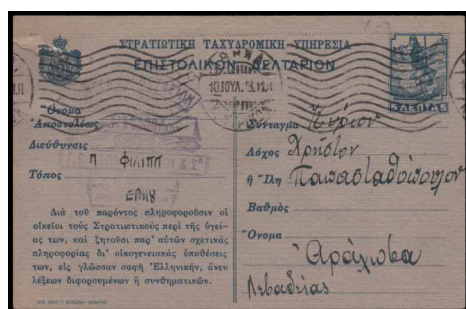 ΣΤΡΑΤΙΩΤΙΚΗ ΤΑΧΥΔΡΟΜΙΚΗ ΥΠΗΡΕΣΙΑ
ΕΠΙΣΤΟΛΙΚΟΝ ΔΕΛΤΑΡΙΟΝ
10.ΙΟΥΛ.
5 ΛΕΠΤΑ 5
Ὄνομα
Ἀποστολέως
Διεύθυνσις
Π ΦΙΛΙΠΠ
Τόπος
ΕΡΜΟΥ
Διὰ τοῦ παρόντος πληροφοροῦσιν οἱ
οἰκεῖοι τοὺς Στρατιωτικοὺς περὶ τῆς ὑγεί-
ας των, καὶ ζητοῦσι παρ' αὐτῶν σχετικὰς
πληροφορίας δι' οἰκογενειακὰς ὑποθέσεις
των, εἰς γλῶσσαν σαφῆ Ἑλληνικήν, ἄνευ
λέξεων διφορουμένων ἢ συνθηματικῶν.
Σύνταγμα Κύριον
Λόχος Χρῆστον
ἢ Ἴλη Παπασταθόπουλον
Βαθμὸς
Ὄνομα
Ἀράχωβα
Λεβαδείας